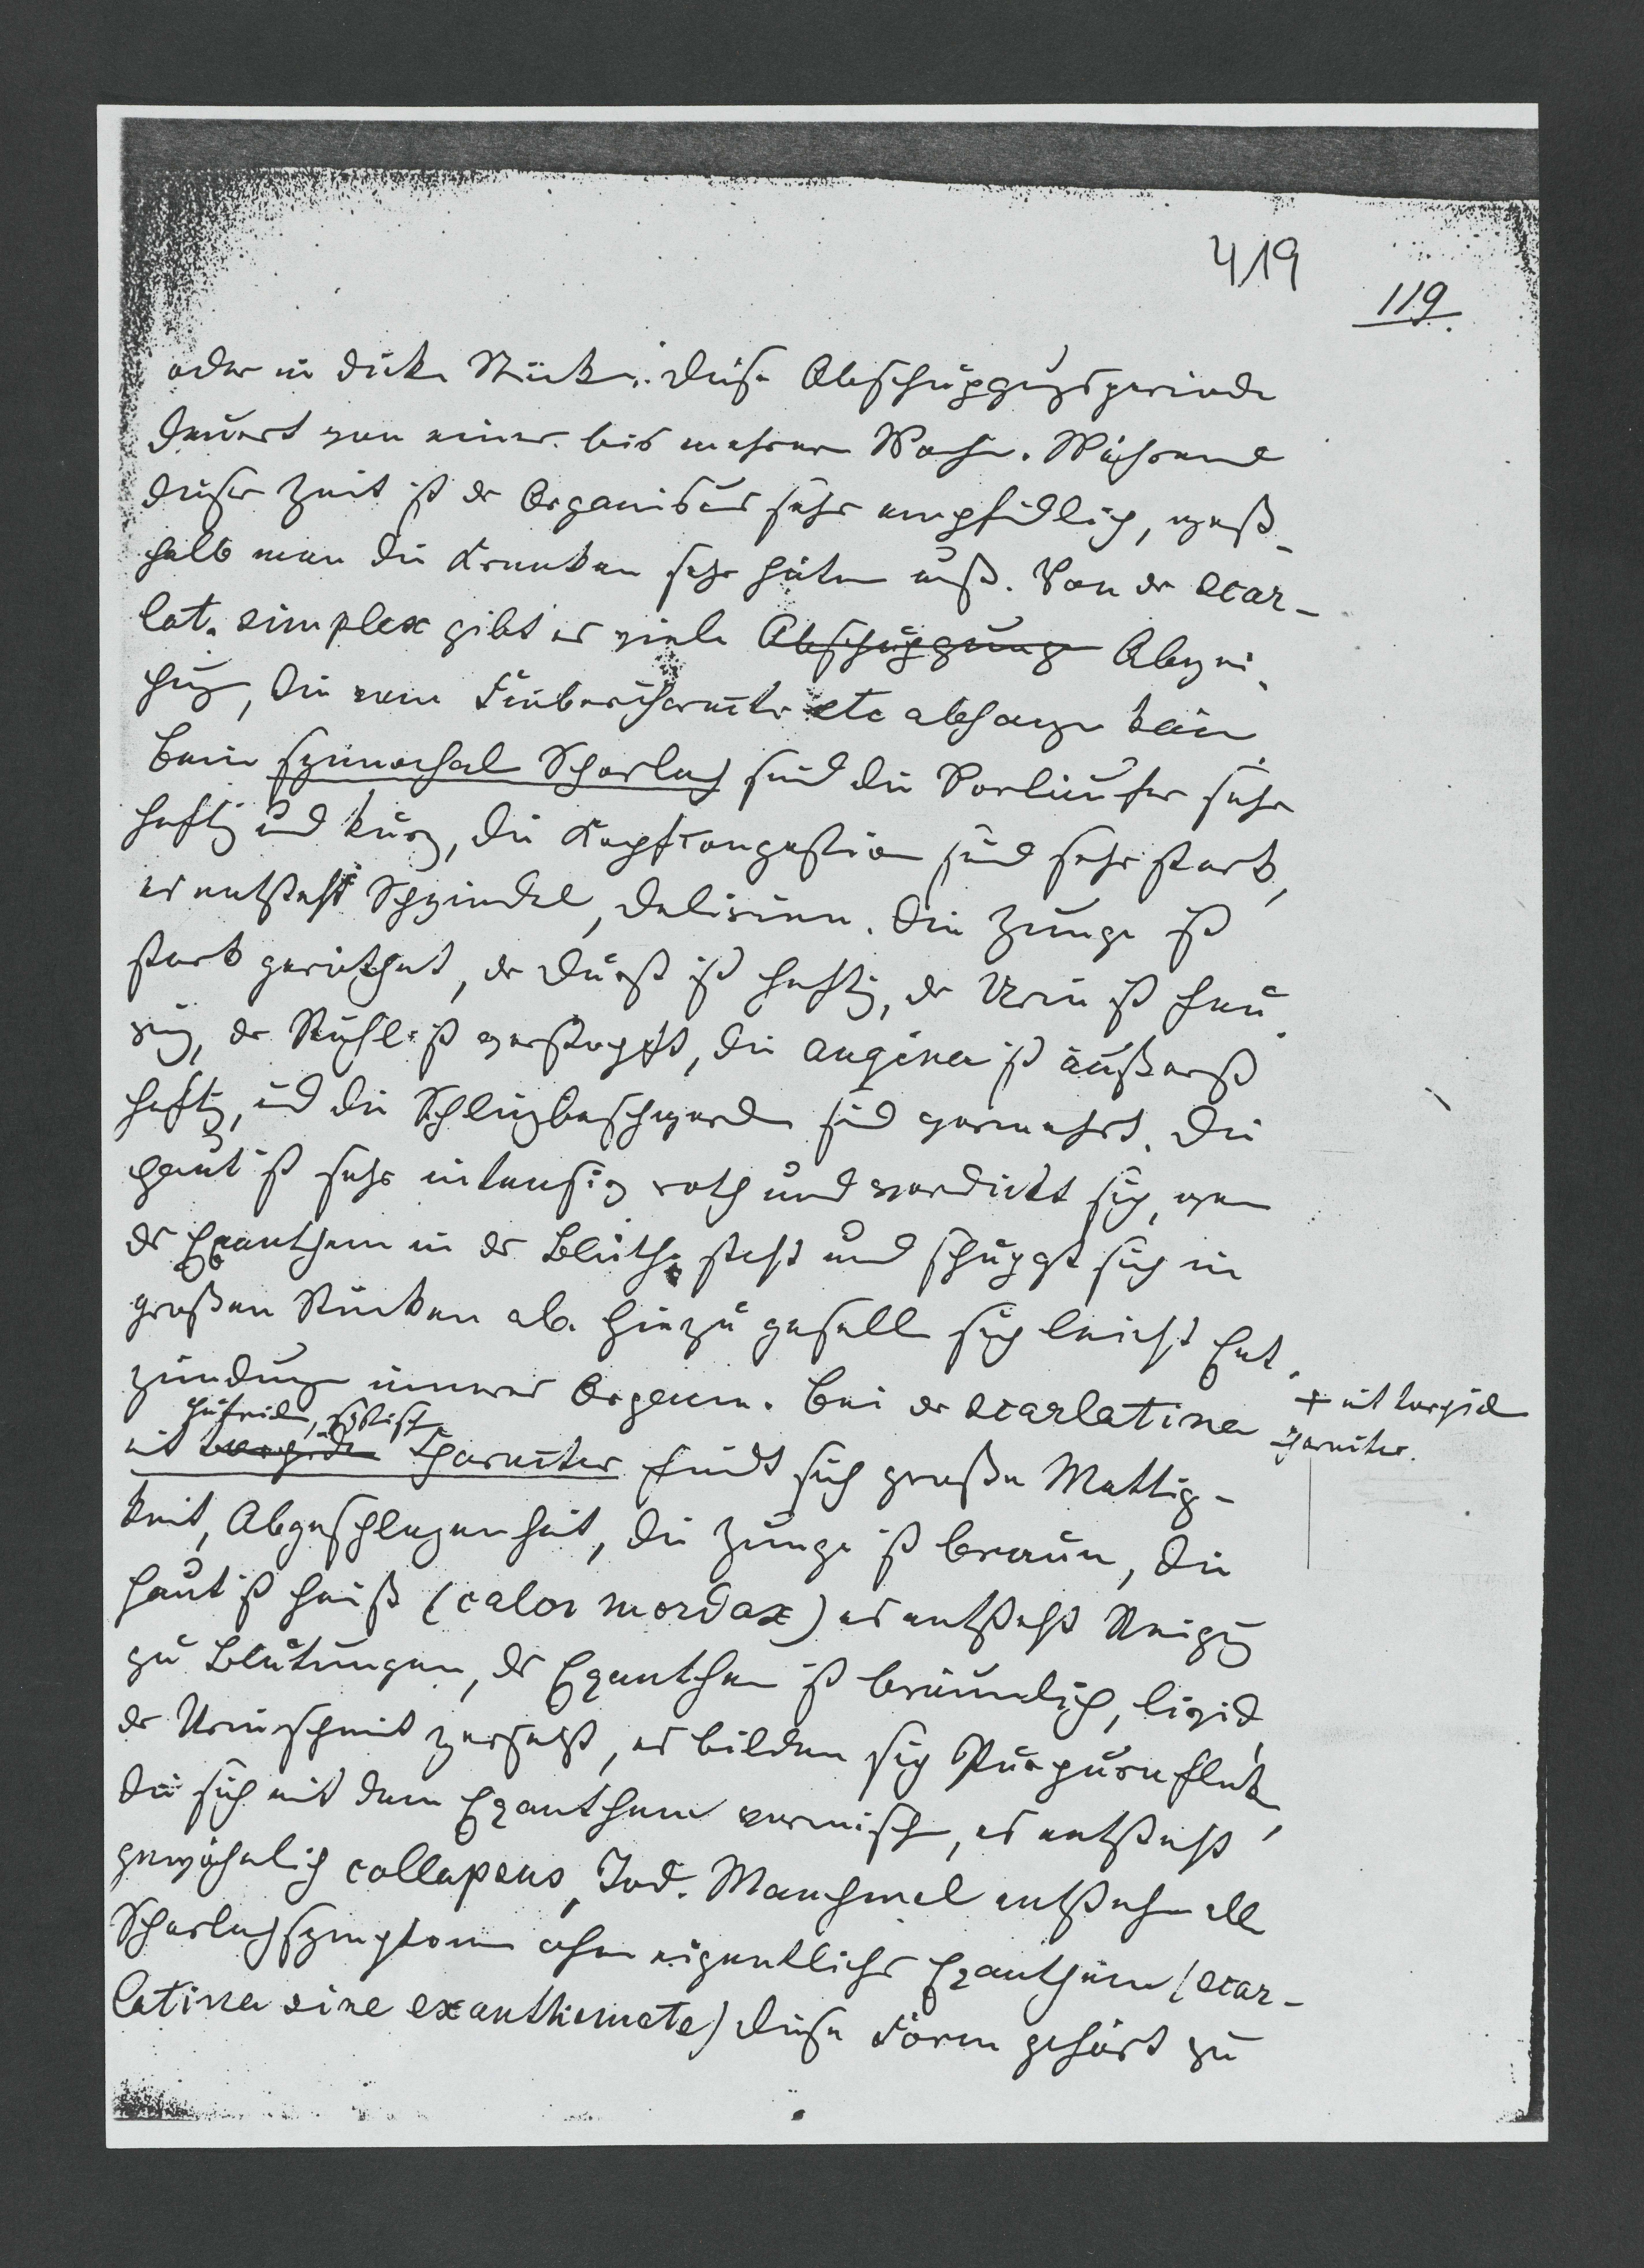 419
119.
oder in dicke Stücke. Diese Abschuppungsperiode
dauert von einer bis mehrere Woche. Während
dieser Zeit ist der Organismus sehr empfindlich, weß-
halb man die Kranken sehr hüten muß. Von der Scar-
lat. simplex gibt es viele Abschuppung Abwei-
chung, die vom Fiebercharakter etc abhangen kann
Beim synochal Scharlach sind die Vorläufer sehr
heftig und kurz, die Kopfcongestion sind sehr stark,
es entsteht Schwindel, Delirien. Die Zunge ist
stark geröthet, der Durst ist heftig, der Urin ist feu-
rig, der Stuhl ist verstopft, die Angina ist äußerst
heftig, und die Schlingbeschwerden sind vermehrt. Die
Haut ist sehr intensiv roth und verdickt sich, wenn
der Exanthem in der Blüthe steht und schuppt sich in
großen Stücken ab. Hiezu gesellt sich leicht Ent-
zündung innerer Organe. Bei der Scarlatina
+ mit torpid
Charakter.
putriden, septisch
mit torpiden Charakter findet sich große Mattig-
keit, Abgeschlagenheit, die Zunge ist braun, die
Haut ist heiß (calor mordax) es entsteht Neigung
zu Blutungen, der Exanthem ist bräunlich, livid,
der Urin scheint zersetzt, es bilden sich Purpuraflecken,
die sich mit dem Exanthem vermischen, es entsteht
gewöhnlich collapsus, Tod. Manchmal entstehen alle
Scharlachsymptome ohne eigentliches Exanthem (Scar-
latina sine exanthemate) diese Form gehört zu